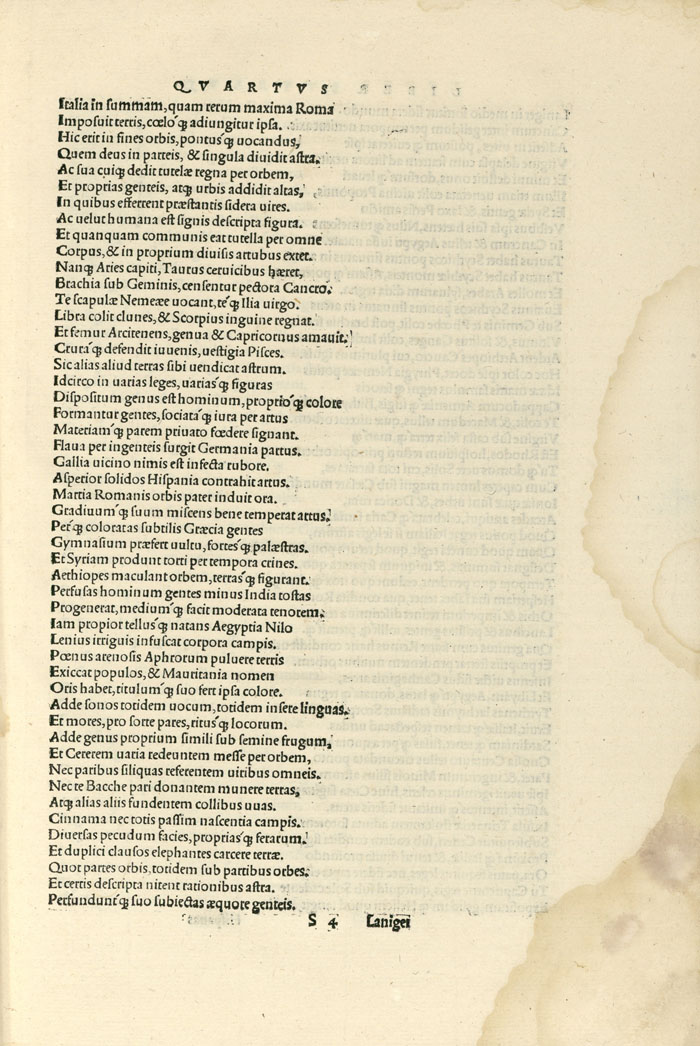 QVARTVS
Italia in summam, quam rerum maxima Roma
Imposuit terris, cœloq́ꝫ adiungitur ipsa.
Hic erit in fines orbis, pontusq́ꝫ uocandus,
Quem deus in parteis, & singula diuidit astra.
Ac sua cuiqꝫ dedit tutelæ regna per orbem,
Et proprias genteis, atqꝫ urbis addidit altas,
In quibus efferrent præstantis sidera uires.
Ac uelut humana est signis descripta figura.
Et quanquam communis eat tutella per omne
Corpus, & in proprium diuisis artubus extet.
Nanqꝫ Aries capiti, Taurus ceruicibus hæret,
Brachia sub Geminis, censentur pectora Cancro.
Te scapulæ Nemeæe uocant, téqꝫ Ilia uirgo.
Libra colit clunes, & Scorpius inguine regnat.
Et femur Arcitenens, genua & Capricornus amauit.
Cruraq́ꝫ defendit iuuenis, uestigia Pisces.
Sic alias aliud terras sibi uendicat astrum.
Idcirco in uarias leges, uariasq́ꝫ figuras
Dispositum genus est hominum, proprioq́ꝫ colore
Formantur gentes, sociataq́ꝫ iura per artus
Materiamq́ꝫ parem priuato fœdere signant.
Flaua per ingenteis surgit Germania partus.
Gallia uicino nimis est infecta rubore.
Asperior solidos Hispania contrahit artus.
Martia Romanis orbis pater induit ora.
Gradiuumq́ꝫ suum miscens bene temperat artus.
Perq́ꝫ coloratas subtilis Græcia gentes
Gymnasium præfert uultu, fortesq́ꝫ palæstras.
Et Syriam produnt torti per tempora crines.
Aethiopes maculant orbem, terrasq́ꝫ figurant.
Perfusas hominum gentes minus India tostas
Progenerat, mediumq́ꝫ facit moderata tenorem.
Iam propior tellusq́ꝫ natans Aegyptia Nilo
Lenius irriguis infuscat corpora campis.
Pœnus arenosis Aphrorum puluere terris
Exiccat populos, & Mauritania nomen
Oris habet, titulumq́ꝫ suo fert ipsa colore.
Adde sonos totidem uocum, totidem insere linguas.
Et mores, pro sorte pares, ritusq́ꝫ locorum.
Adde genus proprium simili sub semine frugum,
Et Cererem uaria redeuntem messe per orbem,
Nec paribus siliquas referentem uiribus omneis.
Nec te Bacche pari donantem munere terras,
Atqꝫ alias aliis fundentem collibus uuas.
Cinnama nec totis passim nascentia campis.
Diuersas pecudum facies, propriasq́ꝫ ferarum.
Et duplici clausos elephantes carcere terræ.
Quot partes orbis, totidem sub partibus orbes.
Et certis descripta nitent rationibus astra.
Perfunduntq́ꝫ suo subiectas æquore genteis.
S 4 Laniger